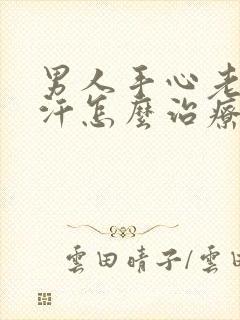 男人手心老
汗怎麼治療
雲田晴子/雲田